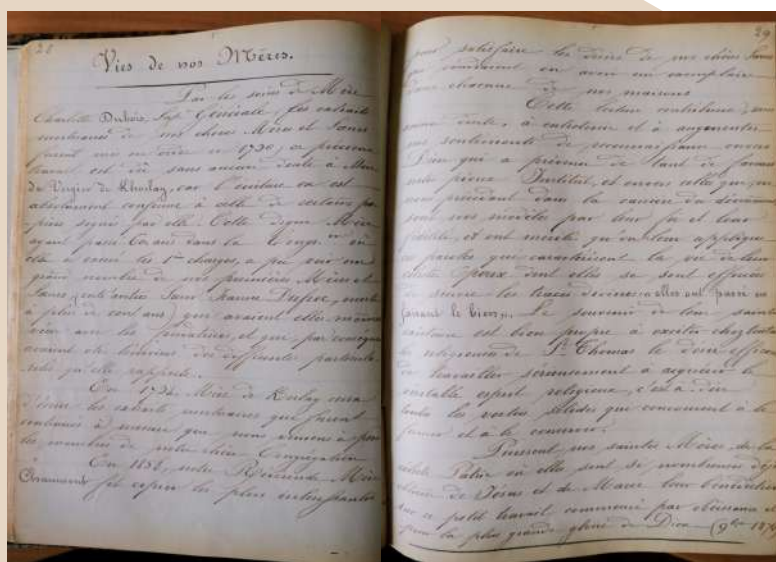 28
Vies de nos Mères.
Par les soins de Mère
Charlotte Dubois, Supre Générale, des extraits
mortuaires de nos chères Mères et Sœurs
furent mis en ordre en 1730; ce précieux
travail est dû sans aucun doute à Mère
du Vergier de Kherlay, car l'écriture en est
absolument conforme à celle de certains pa-
piers signés par elle. Cette digne Mère
ayant passé ans dans la Congron où
elle a exercé les 1res charges, a pu voir un
grand nombre de nos premières Mères et
Sœurs (entr'autres Sœur Jeanne morte
à plus de cent ans) que avaient elles-mêmes
vécu avec les fondatrices, et que par conséquent
avaient été témoins des différentes particula-
rités qu'elle rapporte.
En Mère de Kerlay cessa
d'écrire les extraits mortuaires que furent
continués à mesure que nous avions à perdre
les membres de notre chère Congrégation
En 1858, notre Révérende Mère
Chaumont fit copier les plus intéressantes
29
pour satisfaire les désirs de nos chères Sœurs
que voudraient en avoir un exemplaire
dans chacune de nos maisons
Cette lecture contribuera, sans
aucun doute, à entretenir et à augmenter
nos sentiments de reconnaissance envers
Dieu qui a prévenu de tant de faveurs
notre pieux Institut, et envers celles qui, en
nous précédant dans la carrière du dévouement
sont nos modèles par leur foi et leur
fidélité, et ont mérité qu'on leur applique
les paroles que caractérisent la vie de leur
céleste Époux dont elles se sont efforcées
de suivre les traces divines: «elles ont passé en
faisant le bien». Le souvenir de leur sainte
existence est bien propre à exciter chez toutes
les religieuses de St Thomas le désir efficace
de travailler sérieusement à acquérir le
véritable esprit religieux, c'est à dire
toutes les vertus solides qui conviennent à le
former et à le conserver.
Puissent nos saintes Mères, de la
céleste Patrie où elles sont si nombreuses
de Jésus et de Marie leur bénédiction
sur ce petit travail commencé par obéissance et
pour la plus grande gloire de Dieu (9bre